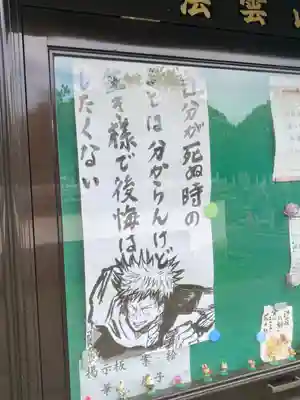 法雲
自分が死ぬ時の
ことは分からんけど
生き様で後悔は
したくない
掲示板